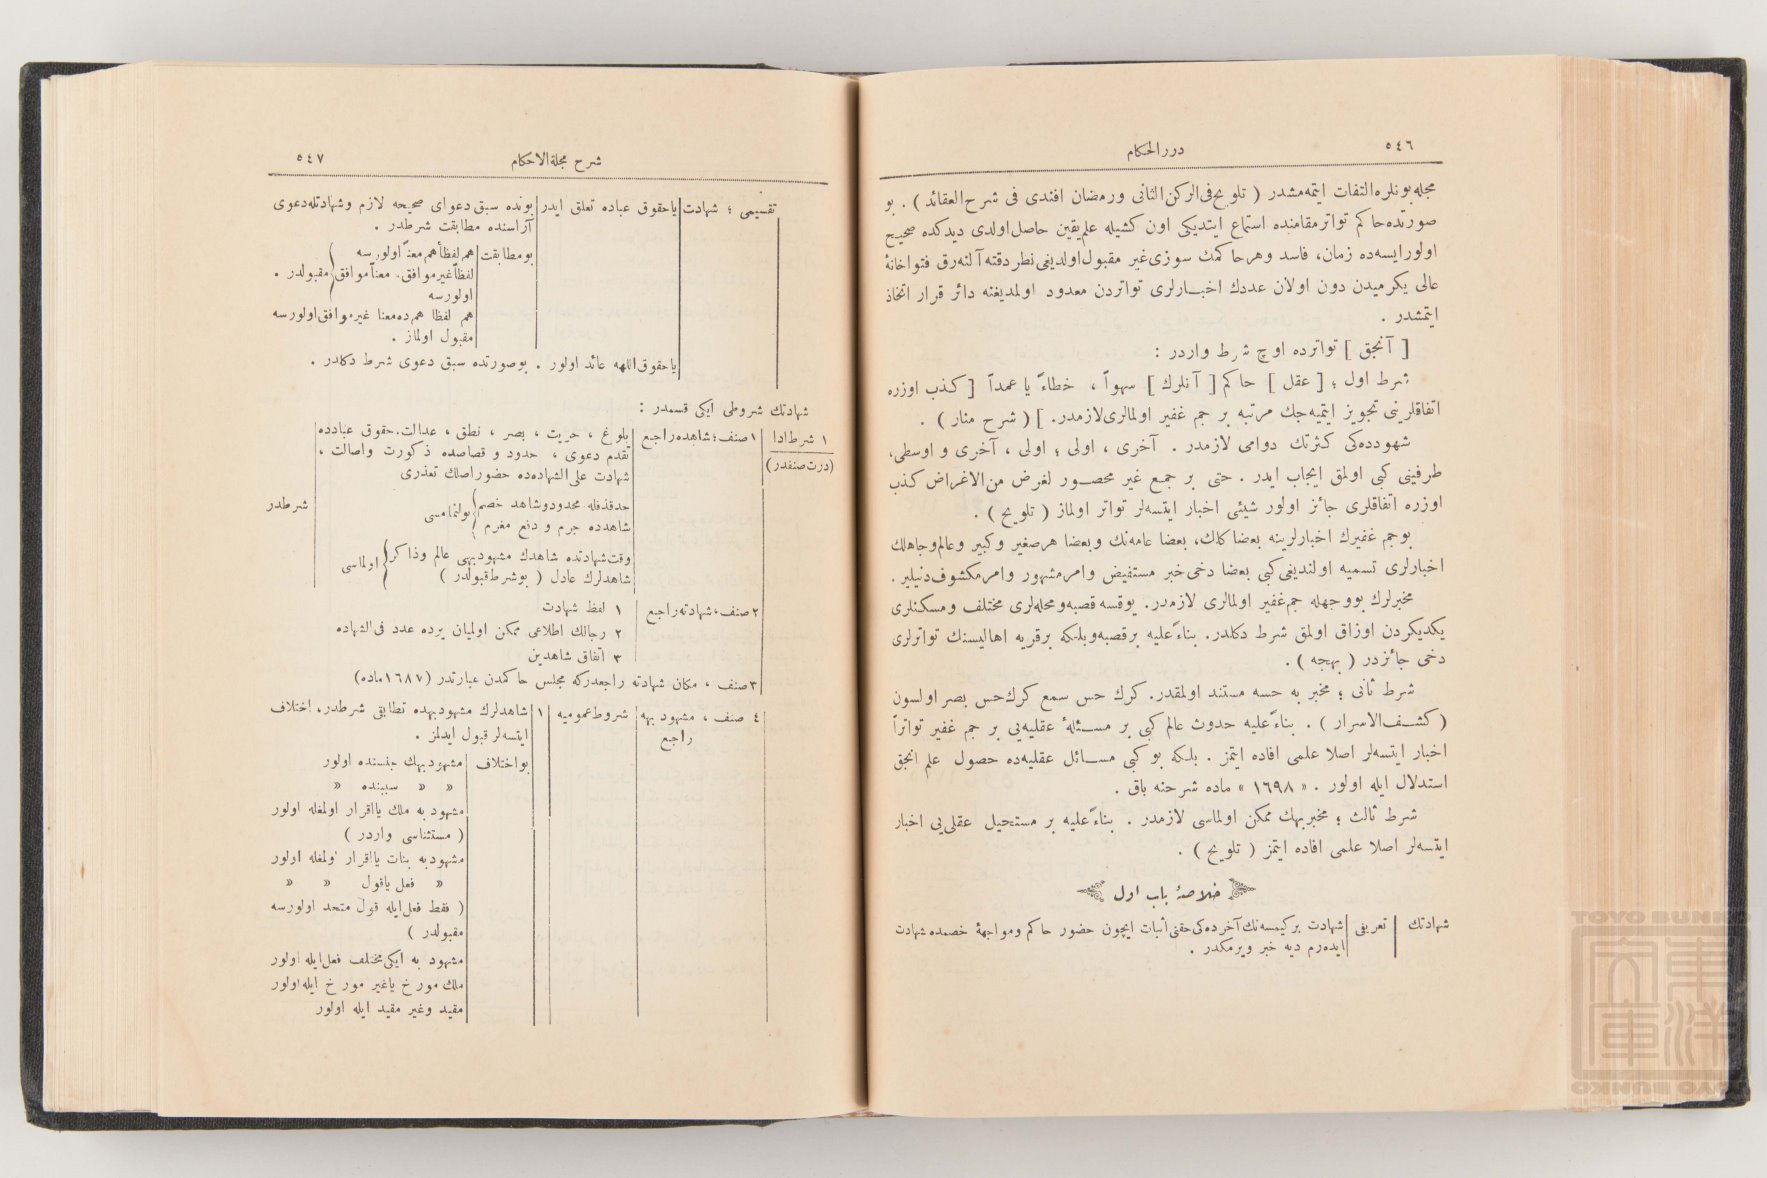 ٥٤٦
دررالحكام
مجله‌بونلره‌التفات ايتمه‌مشدر ( تلويح‌فى‌الركن‌الثانى ورمضان افندى فى شرح‌العقائد ) . بو
صورتده‌حاكم تواترمقامنده استماع ايتديكى اون كشيله علم‌يقين حاصل‌اولدى ديدكده صحيح
اولورايسه‌ده زمان، فاسد وهرحاكمك سوزى‌غير مقبول‌اولديغى‌نظردقته‌آلنه‌رق فتواخانهٔ
عالى يكرميدن دون اولان عددك اخبـارلرى تواتردن معدود اولمديغنه دائر قرار اتخاذ
ايتمشدر .
[ آنجق ] تواترده اوچ شرط واردر :
شرط اول ؛ [ عقل ] حاكم [ آنلرك ] سهواً ، خطاءً يا عمداً [ كذب اوزره
اتفاقلرينى تجويز ايتميه‌جك مرتبه بر جم غفير اولمالرى‌لازمدر. ] ( شرح منار ) .
شهودده‌كى كثرتك دوامى لازمدر . آخرى ، اولى ؛ اولى ، آخرى و اوسطى،
طرفينى كبى اولمق ايجاب ايدر . حتى بر جمع غير محصـور لغرض من‌الاغراض كذب
اوزره اتفاقلرى جائز اولور شيئى اخبار ايتسه‌لر تواتر اولماز ( تلويح ) .
بوجم غفيرك اخبارلرينه بعضا كذلك، بعضا عامه‌نك وبعضا هرصغير وكبير وعالم‌وجاهلك
اخبارلرى تسميه اولنديغى‌كبى بعضا دخى‌خبر مستفيض وامرمشهور وامرمكشوف‌دنيلير .
مخبرلرك بووجهله جم‌غفير اولمالرى لازمدر. يوقسه قصبه‌ومحله‌لرى مختلف ومسكنلرى
يكديكردن اوزاق اولمق شرط دكلدر. بناءً‌عليه برقصبه‌وبلكه برقريه اهاليسنك تواترلرى
دخى جائزدر ( بهجه ) .
شرط ثانى ؛ مخبر به حسه مستند اولمقدر. كرك حس سمع كرك‌حس بصر اولسون
( كشـف‌الاسرار ) . بناءً‌عليه حدوث عالم كبى بر مسـئلهٔ عقليه‌يى بر جم غفير تواتراً
اخبار ايتسه‌لر اصلا علمى افاده ايتمز . بلكه بو كبى مسـائل عقليه‌ده حصول علم انجق
استدلال ايله اولور . « ١٦٩٨ » ماده شرحنه باق .
شرط ثالث ؛ مخبربهك ممكن اولماسى لازمدر . بناءً‌عليه بر مستحيل عقلى‌يى اخبار
ايتسه‌لر اصلا علمى افاده ايتمز ( تلويح ) .
خلاصهٔ باب اول
شهادتك | تعريفى | شهادت بركيمسه‌نك‌آخرده‌كى‌حقنى‌اثبات ايچون حضور حاكم ومواجههٔ خصمده شهادت
ايده‌رم ديه خبر ويرمكدر .
شرح مجلة‌الاحكام
٥٤٧
تقسيمى ؛ شهادت | ياحقوق عباده تعلق ايدر | بونده سبق‌دعواى صحيحه لازم وشهادتله‌دعوى
آراسنده مطابقت شرطدر .
بومطابقت | هم‌لفظاًهم‌معناً اولورسه
لفظاًغيرموافق. معناًموافق } مقبولدر .
اولورسه
هم لفظا هم‌ده‌معنا غيرموافق‌اولورسه
مقبول اولماز .
ياحقوق‌اللهه عائد اولور . بوصورتده سبق دعوى شرط دكلدر .
شهادتك شروطى ايكى قسمدر :
١ شرط‌ادا | ١ صنف؛شاهده‌راجع | بلوغ ، حريت ، بصر ، نطق ، عدالت.حقوق عبادده
(درت‌صنفدر) تقدم دعوى ، حدود و قصاصده ذكورت واصالت ،
شهادت على‌الشهاده‌ده حضوراصلك تعذرى
حدقذفله‌محدودوشاهد خصم } بولنمامسى | شرطدر
شاهدده جرم و دفع مغرم
وقت‌شهادتده شاهدك مشهودبهى عالم وذاكر } اولماسى
شاهدلرك عادل ( بوشرط‌قبولدر )
٢صنف،شهادته‌راجع | ١ لفظ شهادت
٢ رجالك اطلاعى ممكن اولميان يرده عدد فى‌الشهاده
٣ اتفاق شاهدين
٣صنف ، مكان شهادته راجعدركه مجلس حاكمدن عبارتدر (١٦٨٧ماده)
٤ صنف ، مشهود بهه | شروط‌عموميه | ١ | شاهدلرك مشهودبهده تطابقى شرطدر، اختلاف
راجع ايتسه‌لر قبول ايدلمز .
بواختلاف | مشهودبهك جنسنده اولور
« « سببنده «
مشهود به ملك يااقرار اولمغله اولور
( مستثناسى واردر )
مشهودبه بنات يااقرار اولمغله اولور
« فعل ياقول « «
( فقط فعل‌ايله قول متحد اولورسه
مقبولدر )
مشهود به ايكى‌مختلف فعل‌ايله اولور
ملك مورخ ياغير مورخ ايله‌اولور
مقيد وغير مقيد ايله اولور
TOYO BUNKO
東洋
文庫
TOYO BUNKO